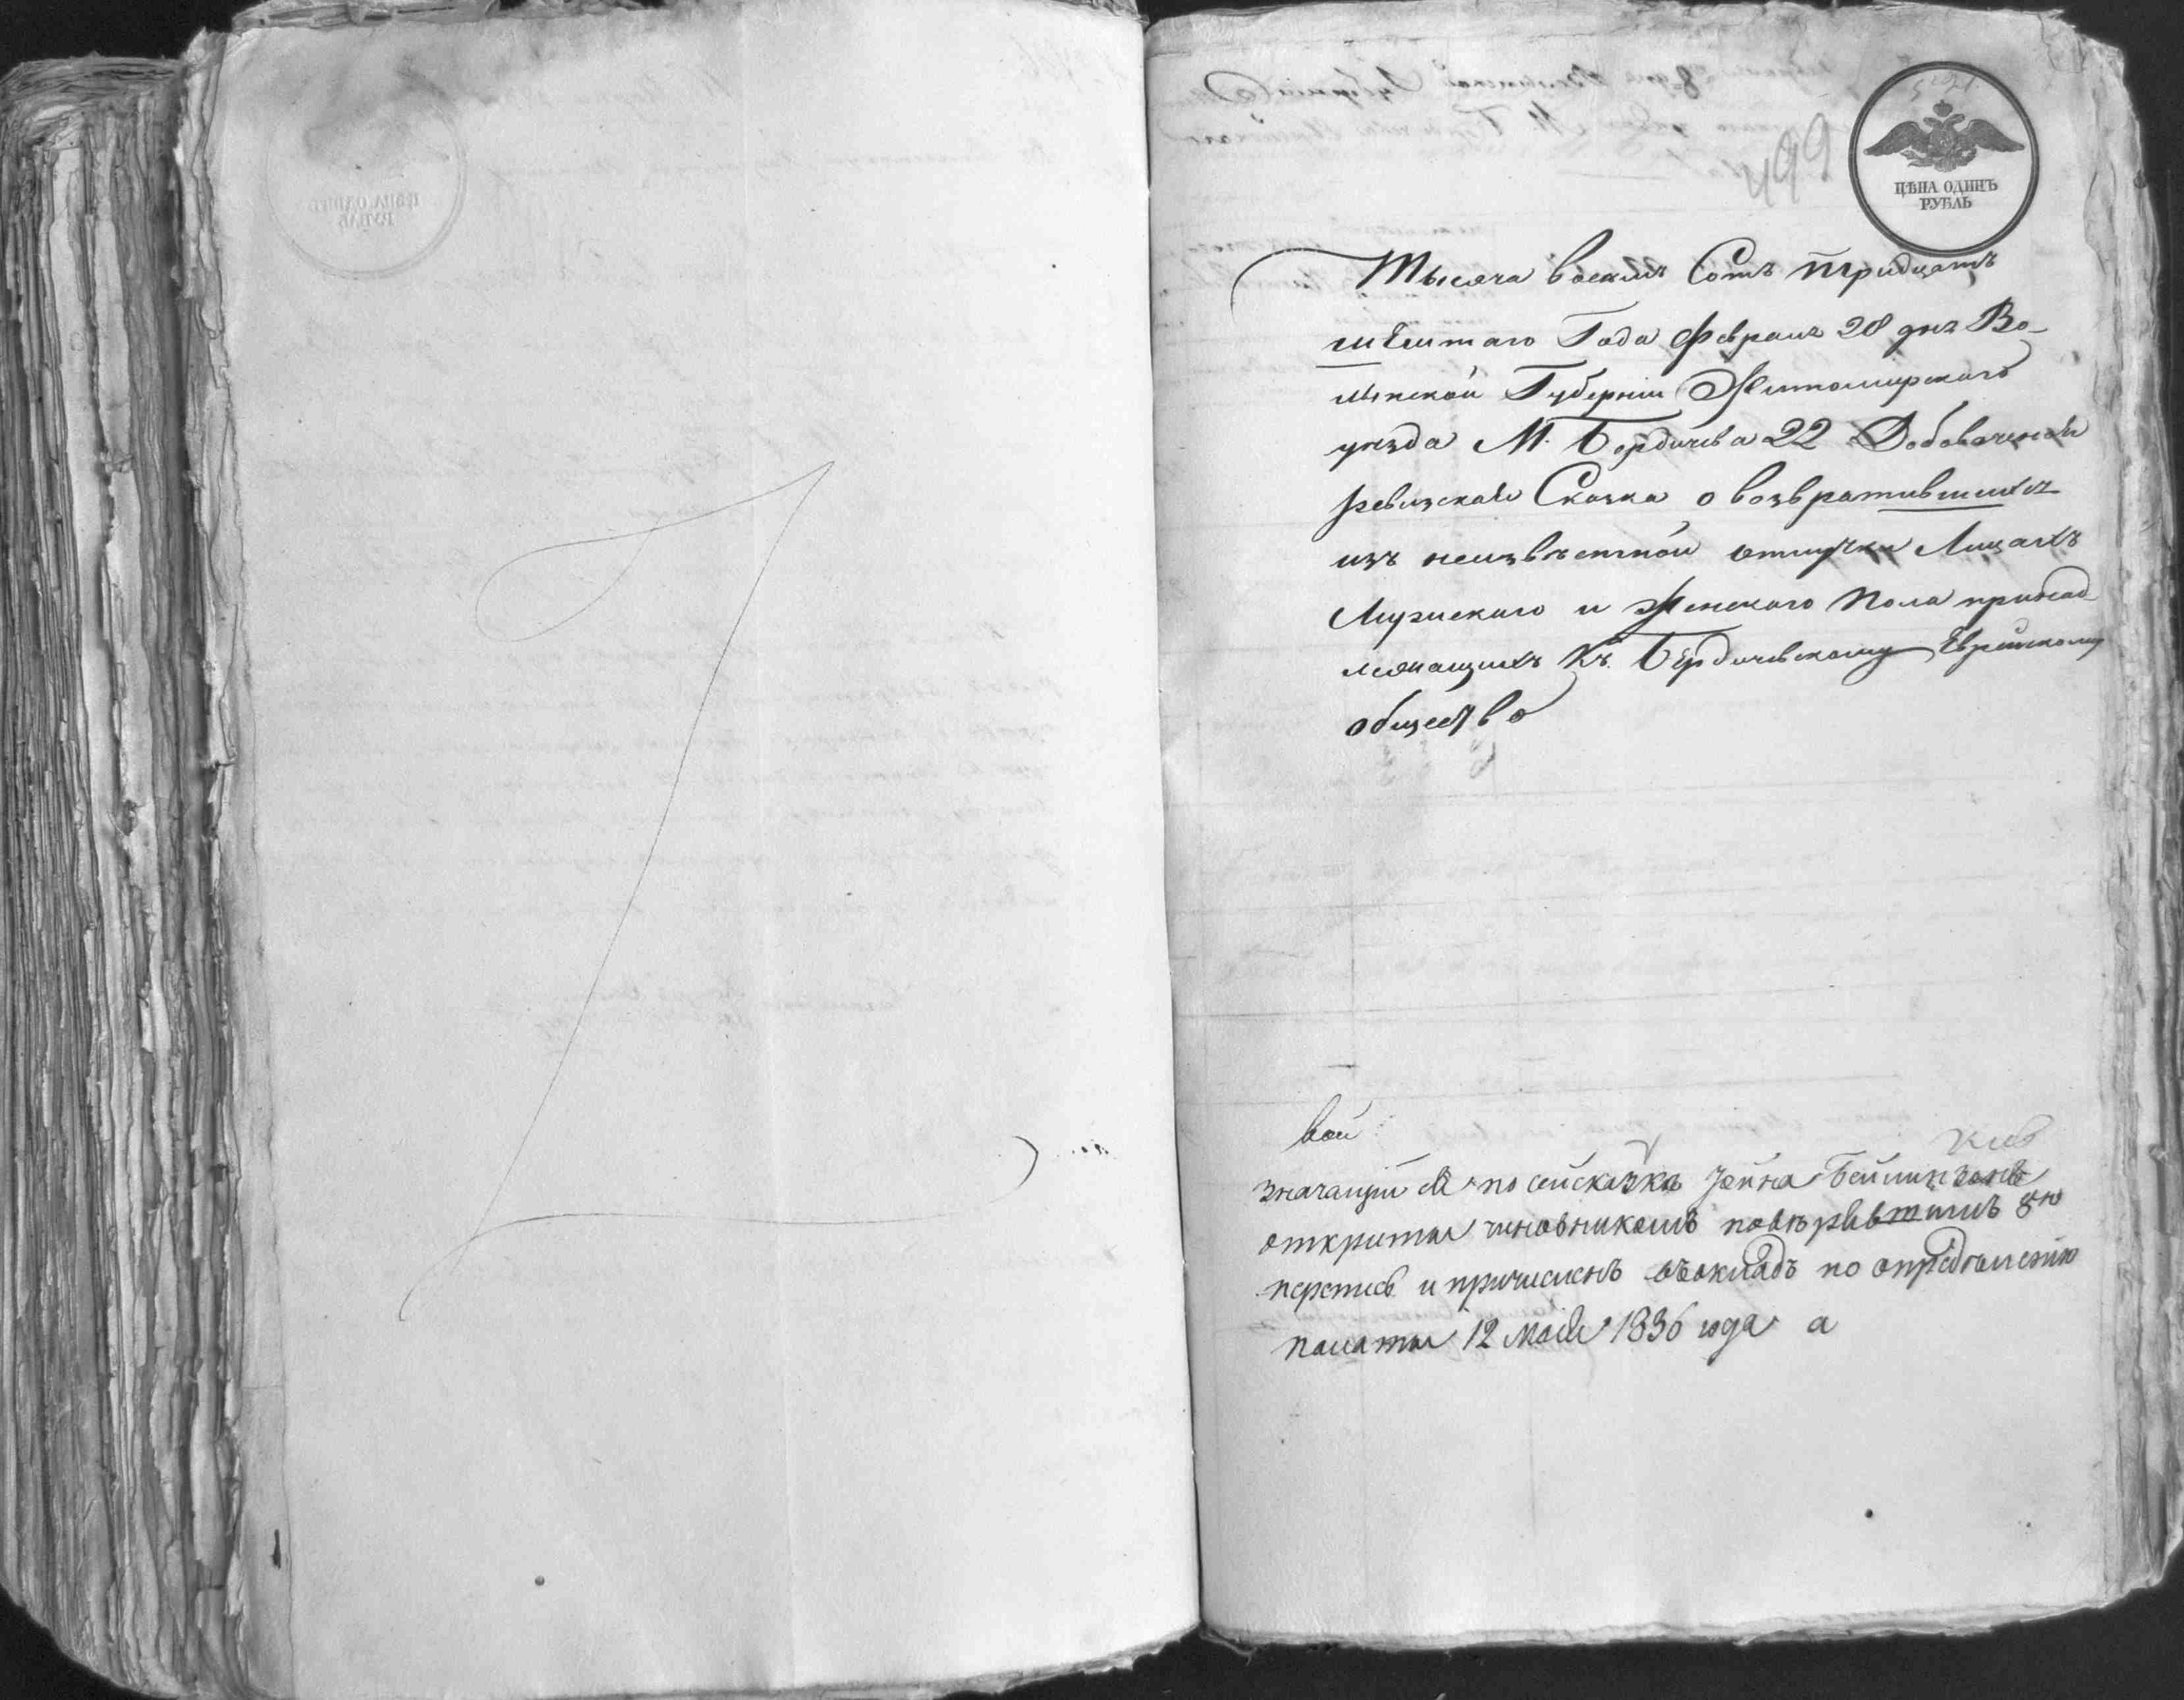 499
ЦѢНА ОДИНЪ
РУБЛЬ
Тысяча восемъ Сотъ тридцать
шестаго Года Февраля 28 дня Во-
лынской Губерніи Житомирского
уезда М. Бердичева 22 Добавочная
ревизская Сказка о возвратившихся
изъ неизвѣстной отлучки Лицахъ
Мужскаго и Женского Пола принад-
лежащихъ Къ Бердичевскому Еврейскому
общество
вой
значащийся по сей сказкѣ Бейлинзонъ
открыты чиновникомъ повѣрявшимъ 8ю
перепись и причисленъ въокладъ по определению
палаты 12 мая 1836 года а